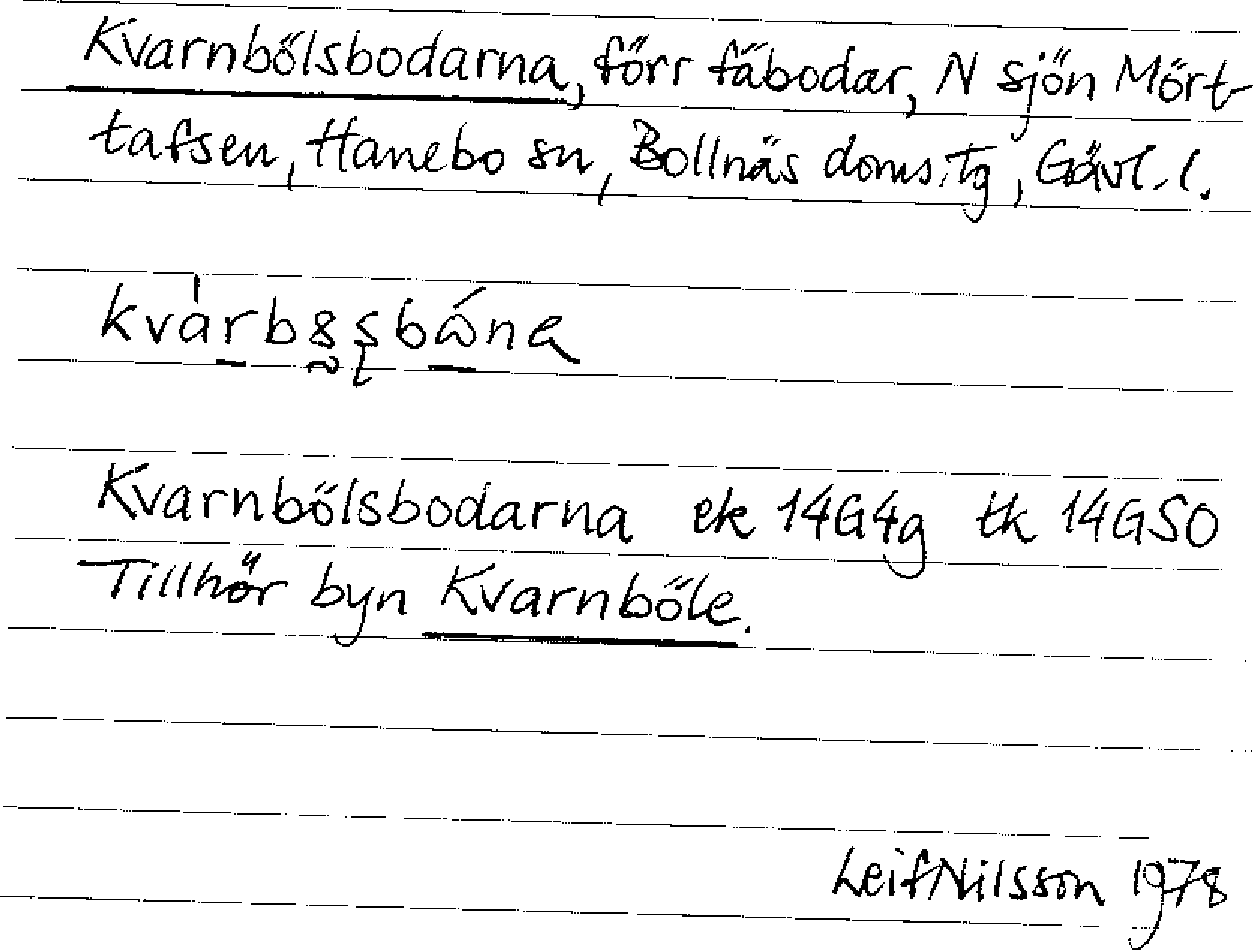 Kvarnbölsbodarna, förr fäbodar, N sjön Mört-
tafsen, Hanebo sn, Bollnäs doms.tg, Gävl. l.
Kvarnbölsbodarna ek 14G4g tk 14GSO
Tillhör byn Kvarnböle.
Leif Nilsson 1978